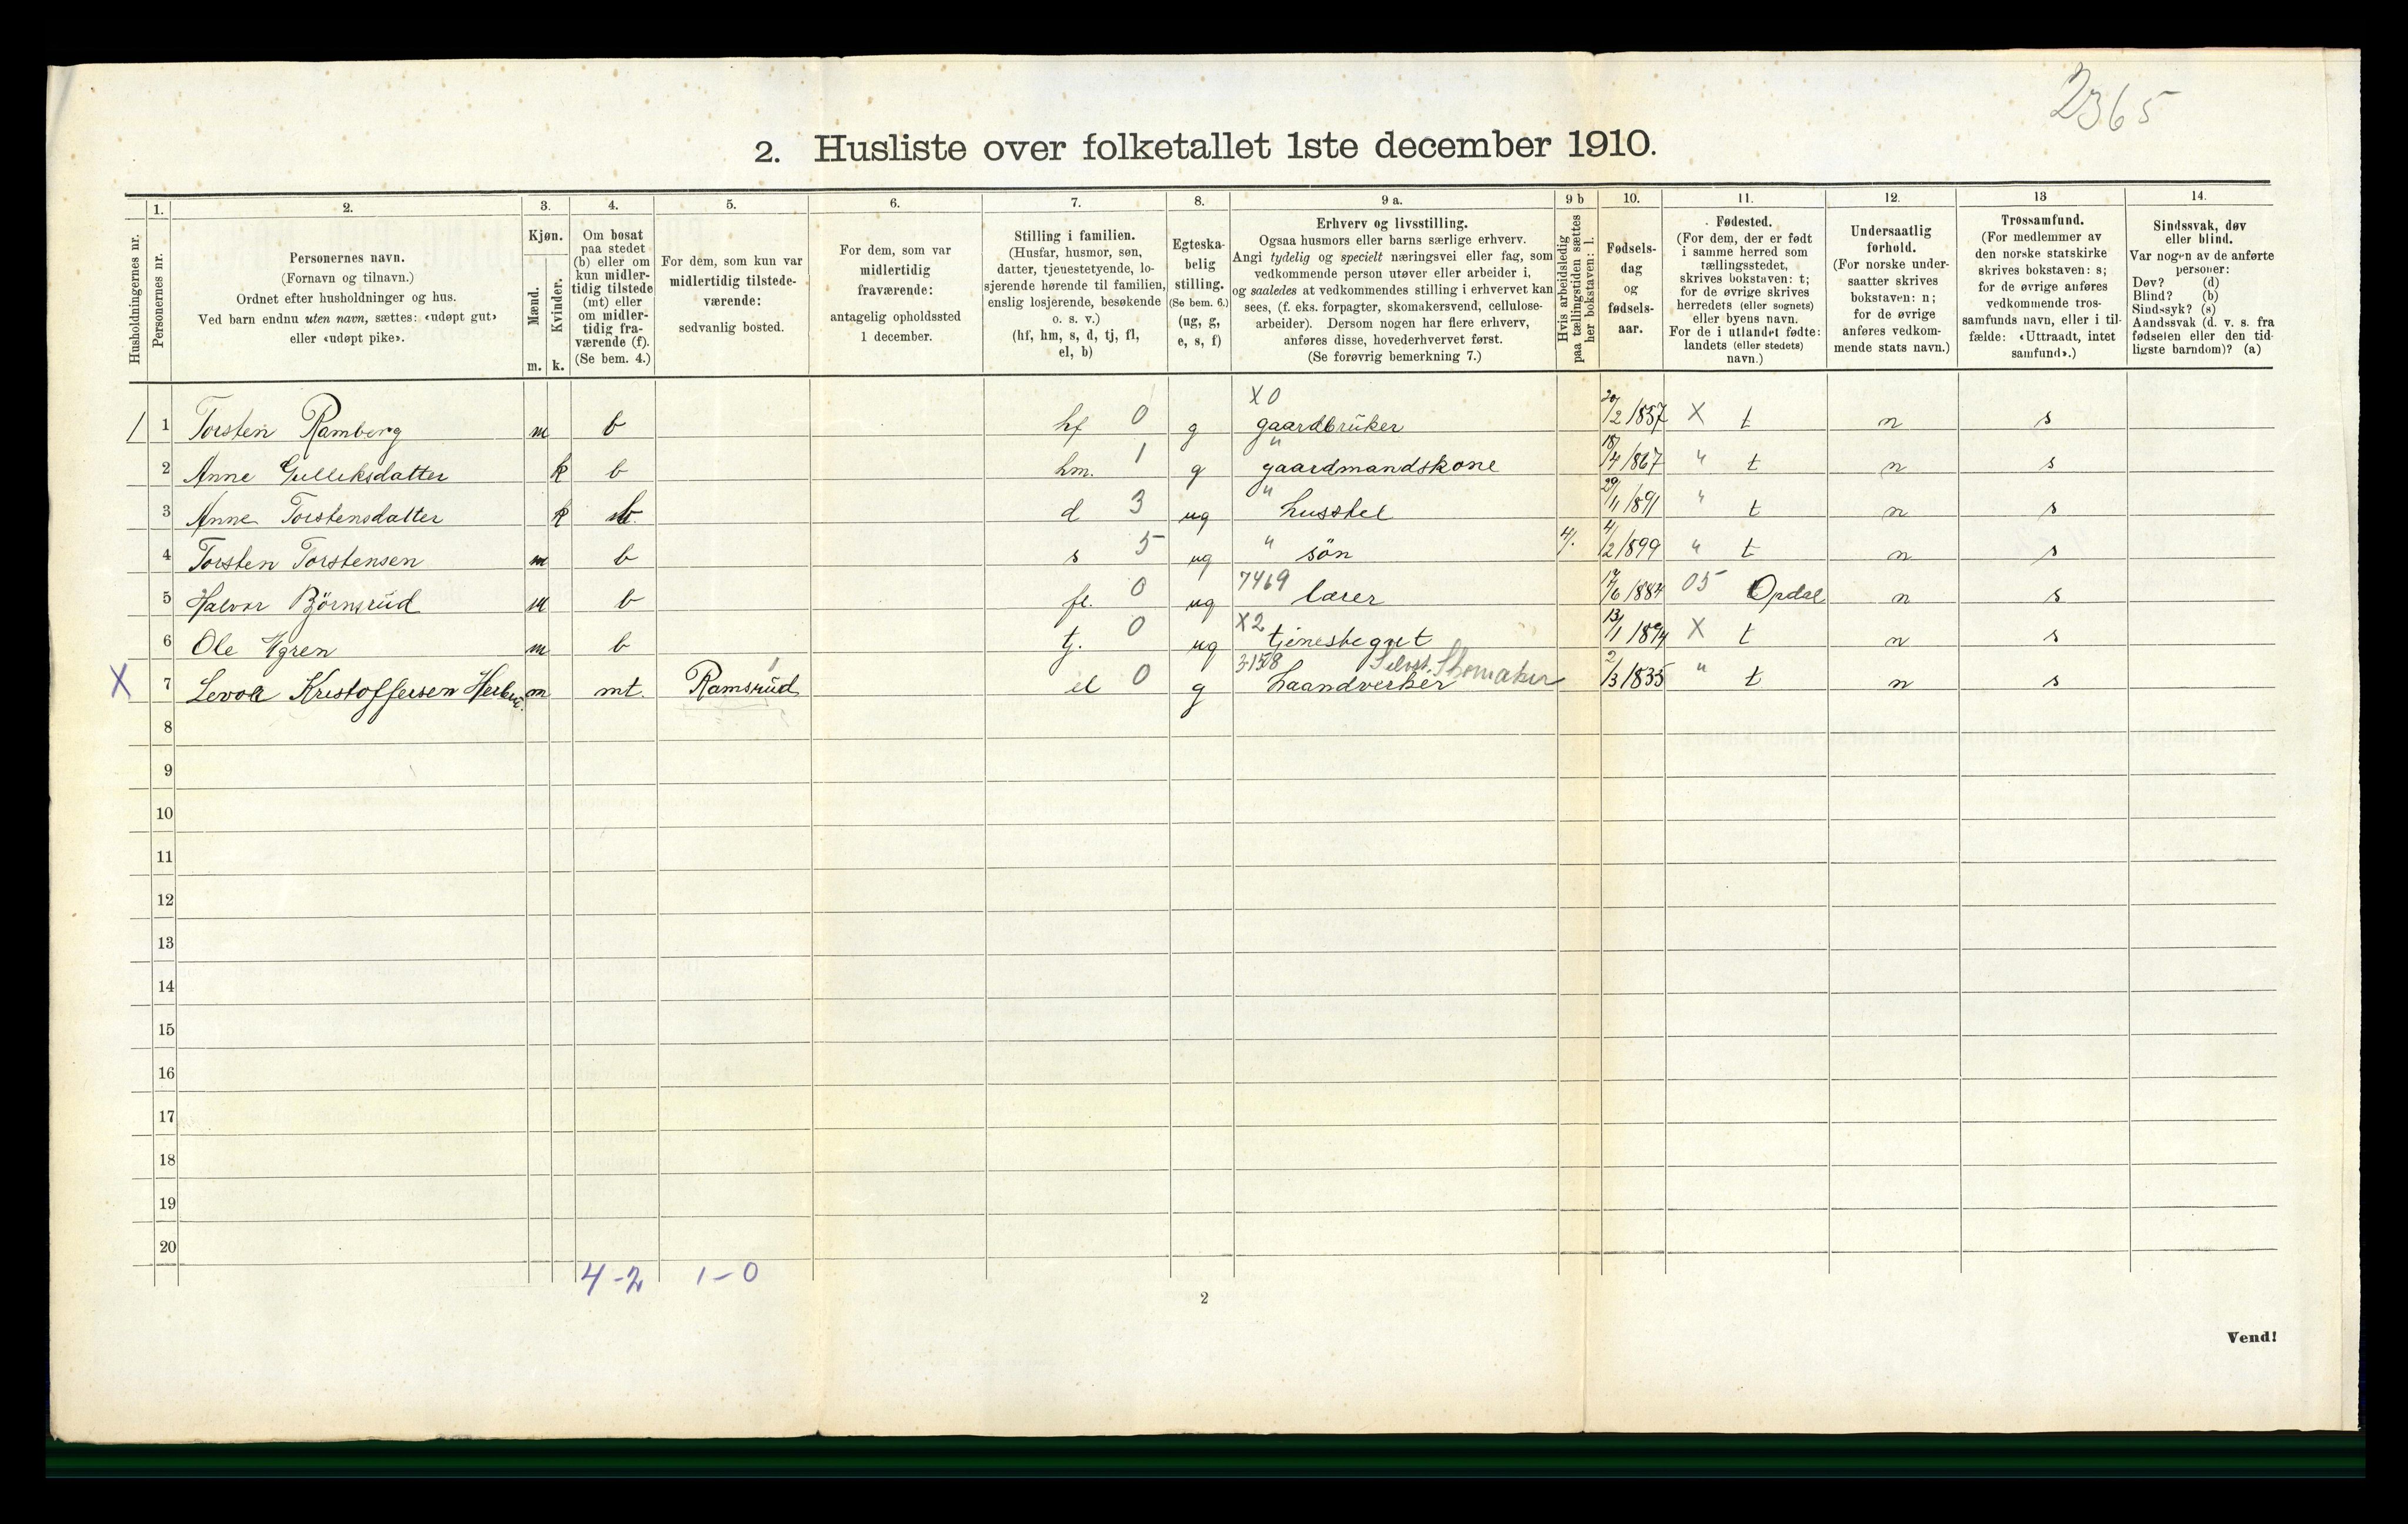 2365
2. Husliste over folketallet 1ste december 1910.
Husholdningernes nr.
1. Personernes nr.
2. Personernes navn.
(Fornavn og tilnavn.)
Ordnet efter husholdninger og hus.
Ved barn endnu uten navn, sættes: «udøpt gut»
eller «udøpt pike».
3. Kjøn.
Mænd. m.
Kvinder. k.
4. Om bosat
paa stedet
(b) eller om
kun midler-
tidig tilstede
(mt) eller
om midler-
tidig fra-
værende (f).
(Se bem. 4.)
5. For dem, som kun var
midlertidig tilstede-
værende:
sedvanlig bosted.
6. For dem, som var
midlertidig
fraværende:
antagelig opholdssted
1 december.
7. Stilling i familien.
(Husfar, husmor, søn,
datter, tjenestetyende, lo-
sjerende hørende til familien,
enslig losjerende, besøkende
o. s. v.)
(hf, hm, s, d, tj, fl,
el, b)
8. Egteska-
belig
stilling.
(Se bem. 6.)
(ug, g,
e, s, f)
9 a. Erhverv og livsstilling.
Ogsaa husmors eller barns særlige erhverv.
Angi tydelig og specielt næringsvei eller fag, som
vedkommende person utøver eller arbeider i,
og saaledes at vedkommendes stilling i erhvervet kan
sees, (f. eks. forpagter, skomakersvend, cellulose-
arbeider). Dersom nogen har flere erhverv,
anføres disse, hovederhvervet først.
(Se forøvrig bemerkning 7.)
9 b Hvis arbeidsledig
paa tællingstiden sættes
her bokstaven: l.
10. Fødsels-
dag
og
fødsels-
aar.
11. Fødested.
(For dem, der er født
i samme herred som
tællingsstedet,
skrives bokstaven: t;
for de øvrige skrives
herredets (eller sognets)
eller byens navn.
For de i utlandet fødte:
landets (eller stedets)
navn.)
12. Undersaatlig
forhold.
(For norske under-
saatter skrives
bokstaven: n;
for de øvrige
anføres vedkom-
mende stats navn.)
13 Trossamfund.
(For medlemmer av
den norske statskirke
skrives bokstaven: s;
for de øvrige anføres
vedkommende tros-
samfunds navn, eller i til-
fælde: «Uttraadt, intet
samfund».)
14. Sindssvak, døv
eller blind.
Var nogen av de anførte
personer:
Døv? (d)
Blind? (b)
Sindssyk? (s)
Aandssvak (d. v. s. fra
fødselen eller den tid-
ligste barndom)? (a)
X 0
1 1 Torsten Ramberg m b hf 0 g gaardbruker 20/2 1857 X t n s
2 Anne Gulliksdatter k b hm. 1 g " gaardmandskone 18/4 1867 " t n s
3 Anne Torstensdatter k b. d 3 ug " husstel 29/11 1891 " t n s
4 Torsten Torstensen m b s 5 ug " søn 4/. 4/2 1899 " t n s
5 Halvor Björnsrud m b fl. 0 ug 7469 lærer 17/6 1884 05 Opdal n s
6 Ole Ygren m b tj. 0 ug X2 tjenestegut 13/1 1894 X t n s
3158 Selvst. Skomaker
X 7 Levor Kristoffersen m mt. Ramsrud el 0 g haandverker 2/3 1835 " t n s
8
9
10
11
12
13
14
15
16
17
18
19
20
4-2 1-0
2
Vend!